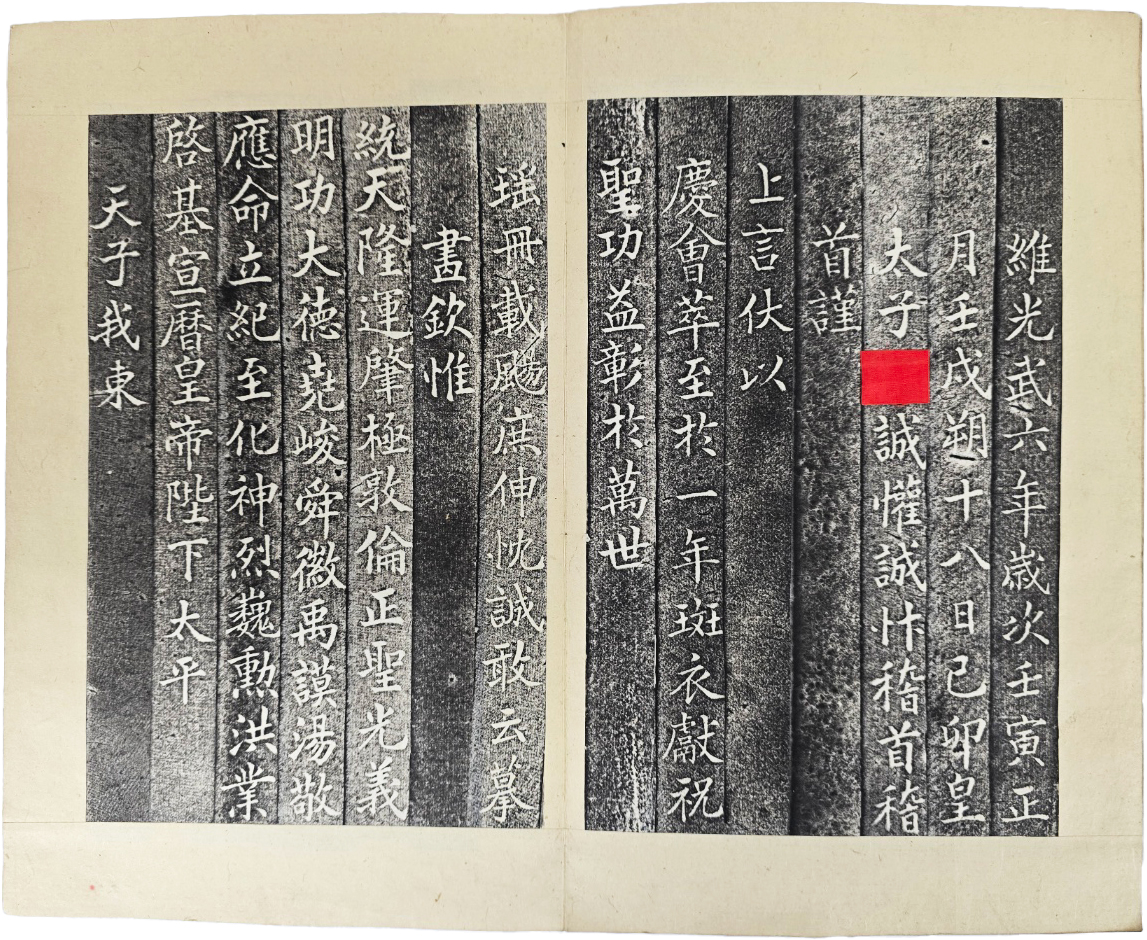 維光武六年歲次壬寅正
月壬戌朔十八日己卯皇
太子誠懽誠忭稽首稽
首謹
上言伏以
慶會萃至於一年斑衣獻祝
聖功益彰於萬世
瑤冊載颺庶伸忱誠敢云摹
畫欽惟
統天隆運肇極敦倫正聖光義
明功大德堯峻舜徽禹謨湯敬
應命立紀至化神烈巍勳洪業
啓基宣曆皇帝陛下太平
天子我東